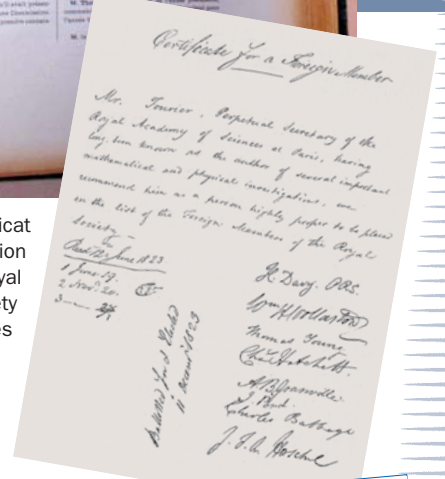 Certificate for a Foreign Member
Mr. Fourier, Perpetual Secretary of the
Royal Academy of Sciences at Paris, having
long been known as the author of several important
mathematical and physical investigations, we
recommend him as a person highly proper to be placed
on the list of the Foreign Members of the Royal
Society
Read 12 June 1823
1 June 19.
2 Nov. 20.
3
Balloted for & Elected
11 Decemr 1823
H. Davy. PRS.
Wm H Wollaston
Thomas Young
Chas Hatchett.
A.B. Granville
J. Pond.
Charles Babbage
J. F. W. Herschel
icat
ion
yal
ety
es